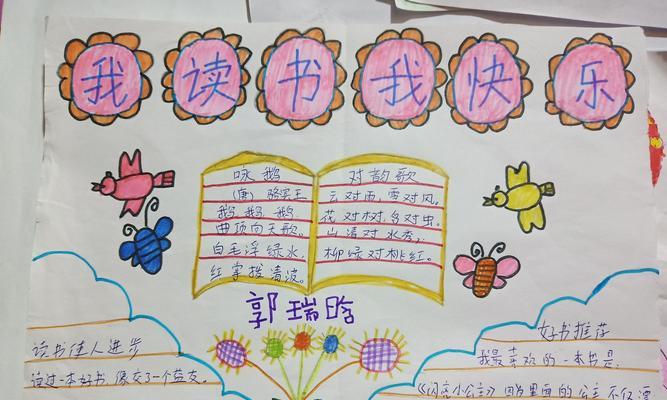 我读书我快乐
咏鹅
(唐) 骆宾王
鹅鹅鹅
曲项向天歌。
白毛浮绿水,
红掌拨清波。
对韵歌
云对雨,雪对风。
花对树,鸟对虫。
山清对水秀,
柳绿对桃红。
郭瑞晗
读书使人进步
读过一本好书,像交了一个益友。
好书推荐
我最喜欢的一本书是,
《闪亮小公主》因为里面的公主不仅漂